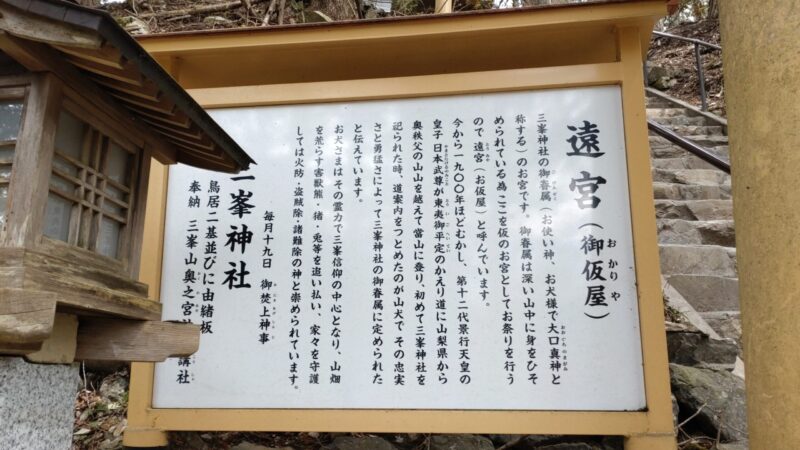 遠宮（御仮屋）
おかりや
三峯神社の御眷属（お使い神、お犬様で大口真神と
おおぐちのまがみ
称する）のお宮です。御眷属は深い山中に身をひそ
められている為ここを仮のお宮としてお祭りを行う
ので遠宮（お仮屋）と呼んでいます。
今から一九〇〇年ほどむかし、第十二代景行天皇の
皇子日本武尊が東夷御平定のかえり道に山梨県から
奥秩父の山山を越えて當山に登り、初めて三峯神社を
祀られた時、道案内をつとめたのが山犬で その忠実
さと勇猛さによって三峯神社の御眷属に定められた
と伝えています。
お犬さまはその霊力で三峯信仰の中心となり、山畑
を荒らす害獣熊・猪・兎等を追い払い、家々を守護
しては火防・盗賊除・諸難除の神と崇められています。
毎月十九日 御焚上神事
三峯神社
鳥居二基並びに由緒板
奉納 三峯山奥之宮 講社